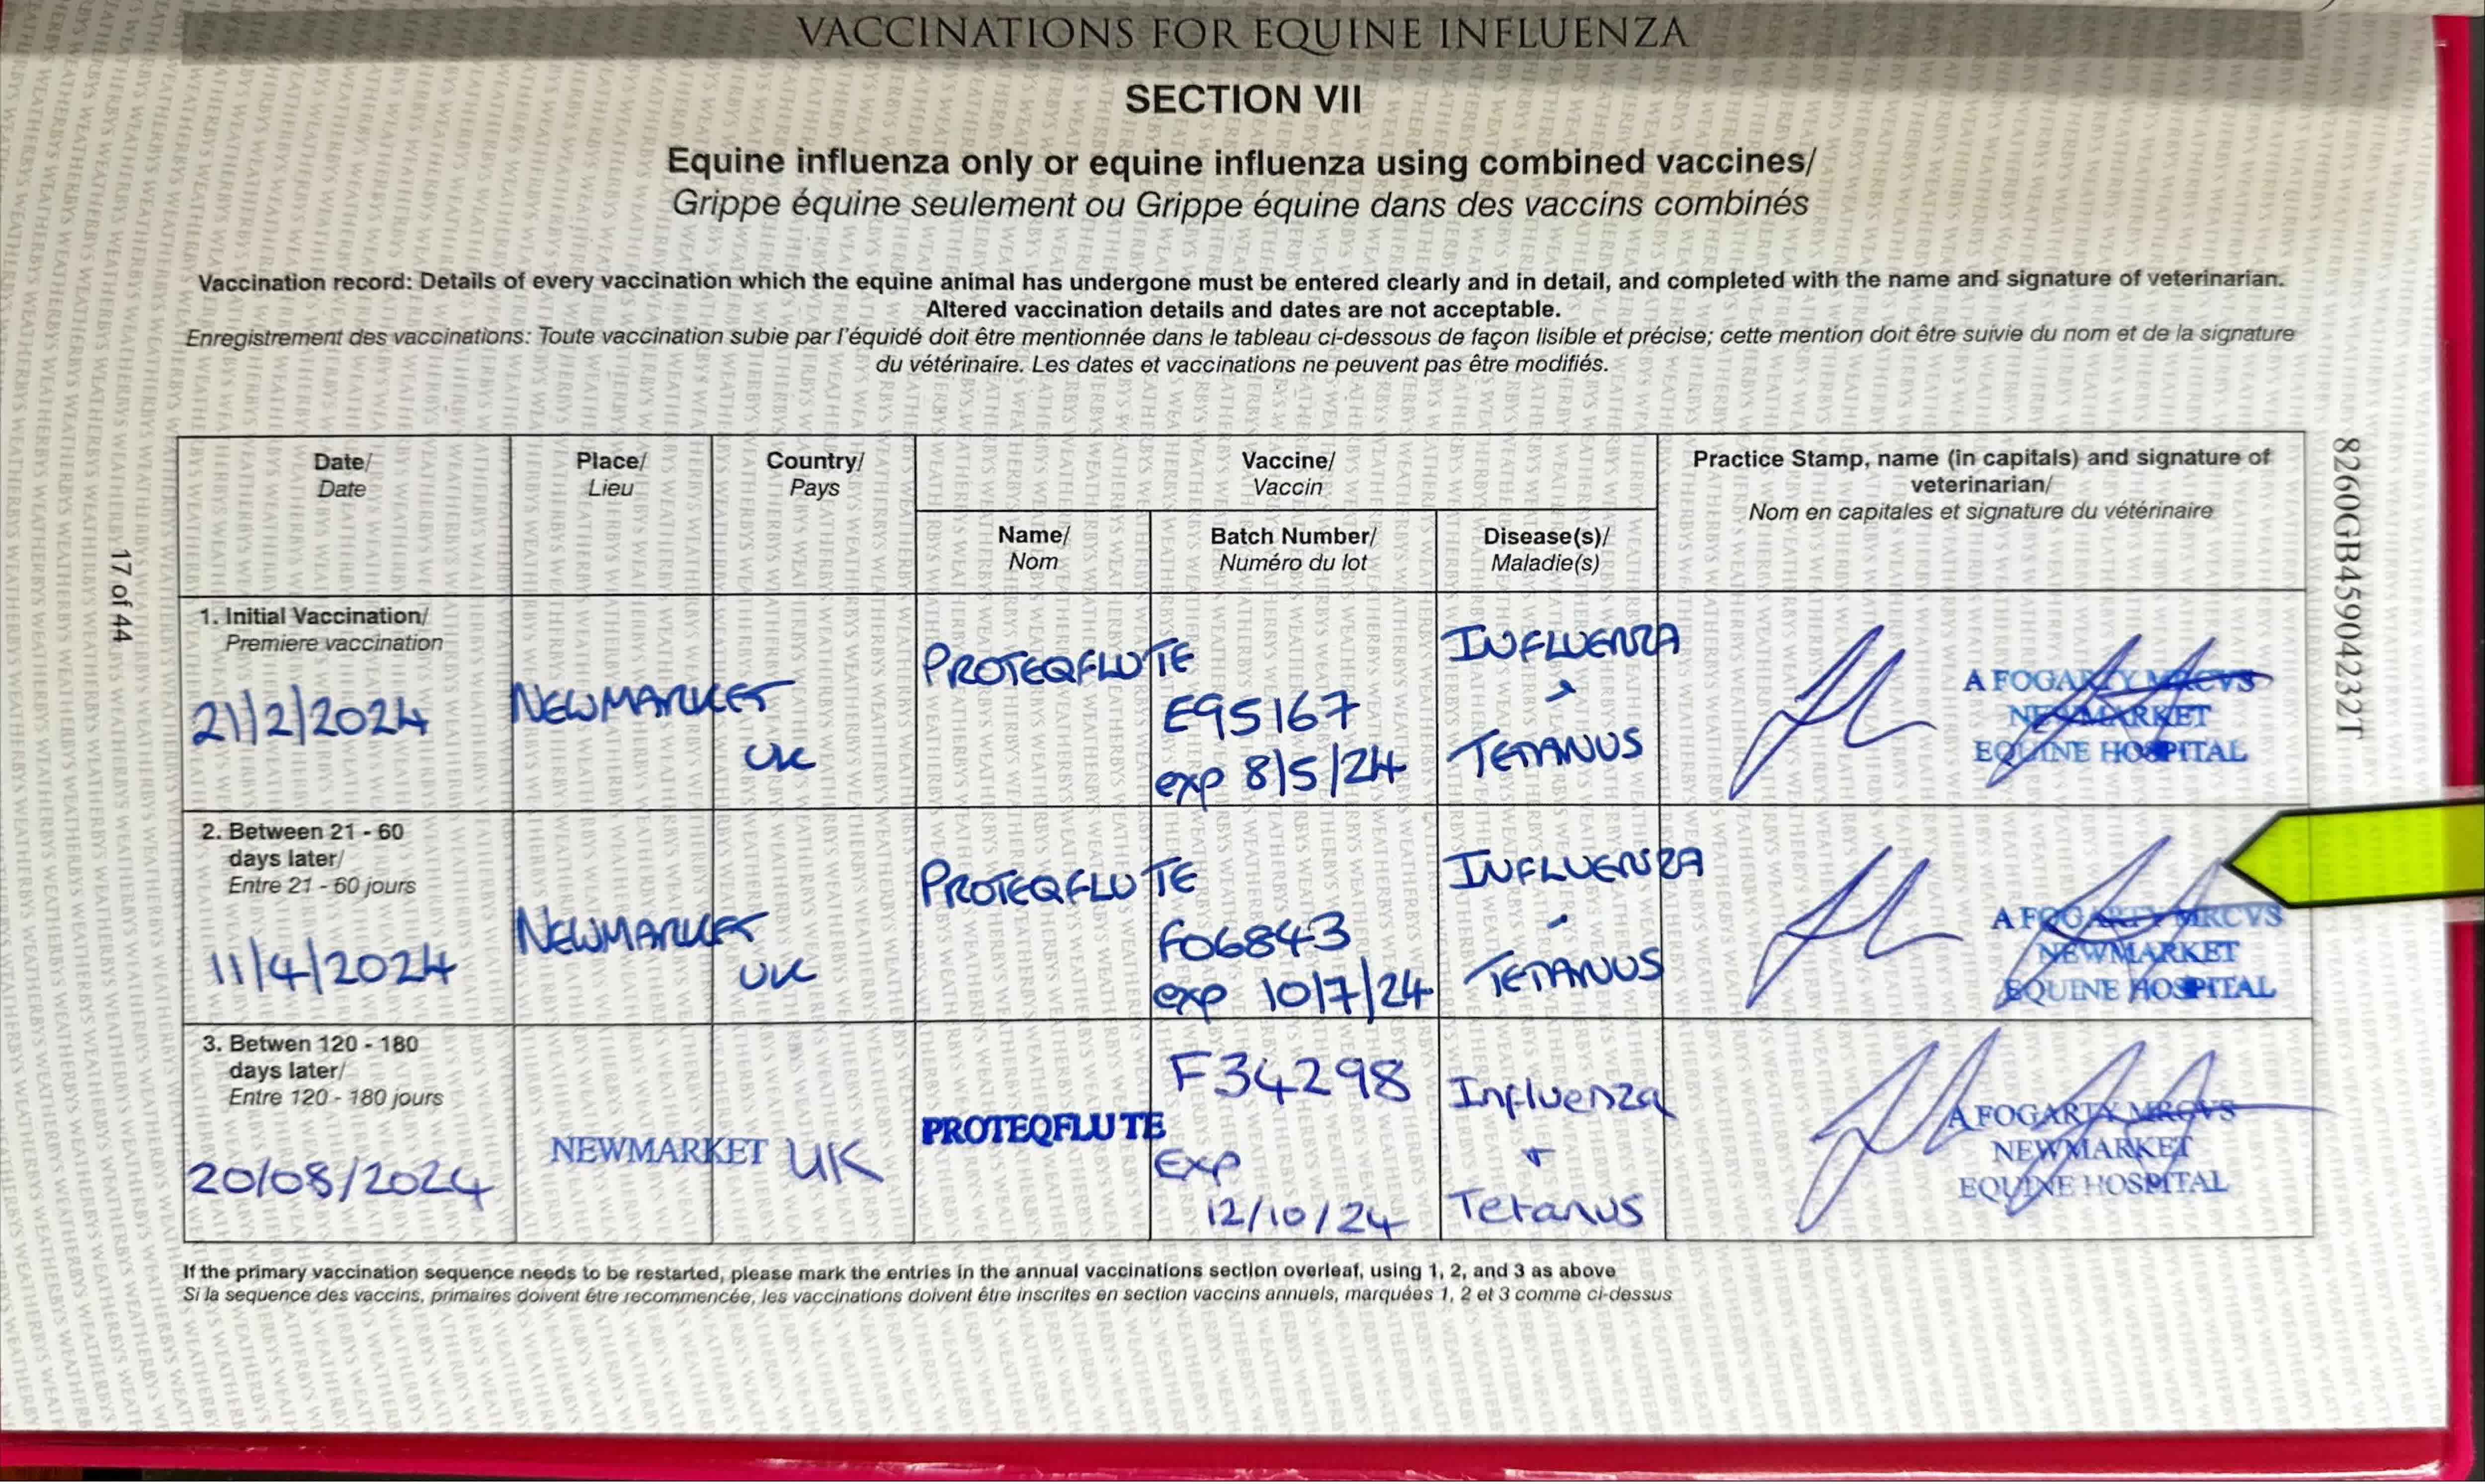 VACCINATIONS FOR EQUINE INFLUENZA
SECTION VII
Equine influenza only or equine influenza using combined vaccines/
Grippe équine seulement ou Grippe équine dans des vaccins combinés
Vaccination record: Details of every vaccination which the equine animal has undergone must be entered clearly and in detail, and completed with the name and signature of veterinarian.
Altered vaccination details and dates are not acceptable.
Enregistrement des vaccinations: Toute vaccination subie par l'équidé doit être mentionnée dans le tableau ci-dessous de façon lisible et précise; cette mention doit être suivie du nom et de la signature
du vétérinaire. Les dates et vaccinations ne peuvent pas être modifiés.
Date/
Date
Place/
Lieu
Country/
Pays
Vaccine/
Vaccin
Practice Stamp, name (in capitals) and signature of
veterinarian/
Nom en capitales et signature du vétérinaire
Name/
Nom
Batch Number/
Numéro du lot
Disease(s)/
Maladie(s)
1. Initial Vaccination/
Premiere vaccination
21/2/2024
NEWMARKET
UK
PROTEQFLUTE
E95167
exp 8/5/24
INFLUENZA
+
TETANUS
A FOGARTY MRCVS
NEWMARKET
EQUINE HOSPITAL
2. Between 21 - 60
days later/
Entre 21 - 60 jours
11/4/2024
NEWMARKET
UK
PROTEQFLUTE
F06843
exp 10/7/24
INFLUENZA
+
TETANUS
A FOGARTY MRCVS
NEWMARKET
EQUINE HOSPITAL
3. Betwen 120 - 180
days later/
Entre 120 - 180 jours
20/08/2024
NEWMARKET
UK
PROTEQFLUTE
F34298
Exp
12/10/24
Influenza
+
Tetanus
A FOGARTY MRCVS
NEWMARKET
EQUINE HOSPITAL
If the primary vaccination sequence needs to be restarted, please mark the entries in the annual vaccinations section overleaf, using 1, 2, and 3 as above
Si la sequence des vaccins, primaires doivent être recommencée, les vaccinations doivent être inscrites en section vaccins annuels, marquées 1, 2 et 3 comme ci-dessus
17 of 44
8260GB45904232T